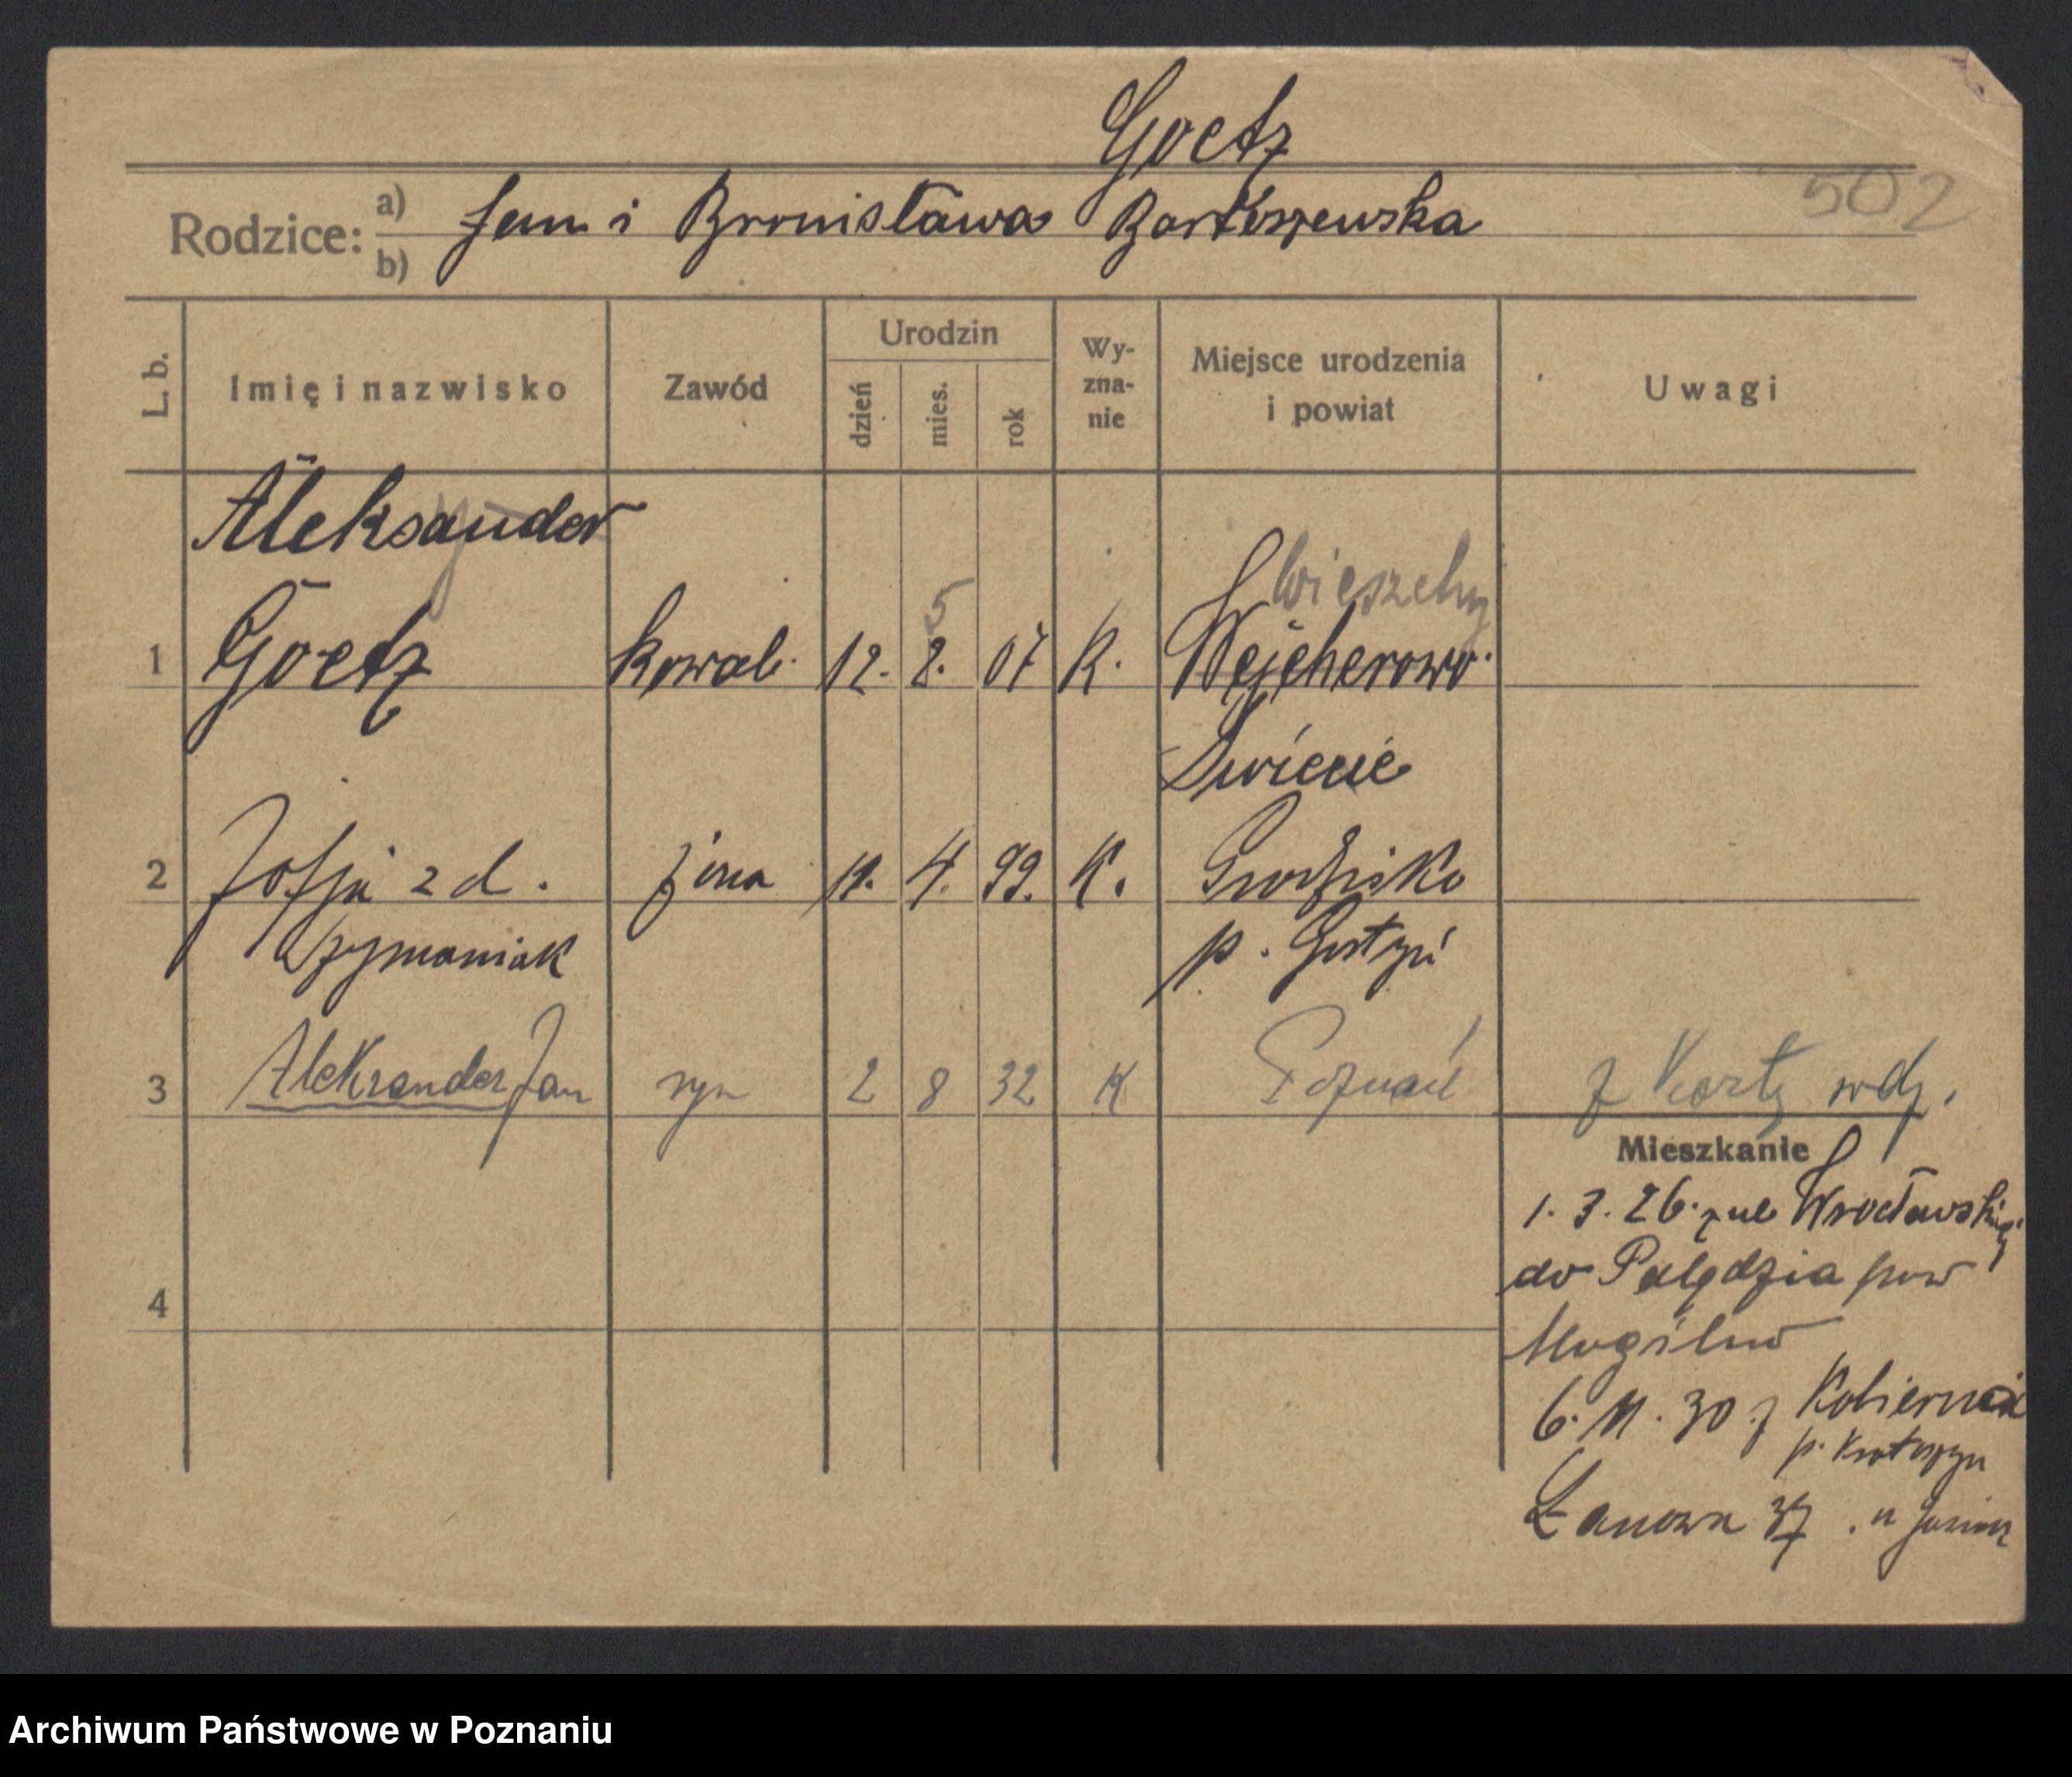 Goetz
502
Rodzice: a) b) Jan i Bronisława Bartoszewska
L. b. Imię i nazwisko Zawód Urodzin dzień mies. rok Wy-zna-nie Miejsce urodzenia i powiat Uwagi
Aleksander
5
1 Goetz kowal. 12. 8. 07 K. Wejcherowo.
Świecie
2 Zofja z d. żona 11. 4. 99. K. Grodzisko
Szymaniak p. Gostyń
3 Aleksander Jan syn 2 8 32 K Poznań z Karty wdz.
Mieszkanie
1. 3. 26. z ul. Wrocławskiej
do Palędzia pow
Mogilno
4
6. 11. 30 z Kobierna
p. Krotoszyn
Łanowa 37. u
Archiwum Państwowe w Poznaniu